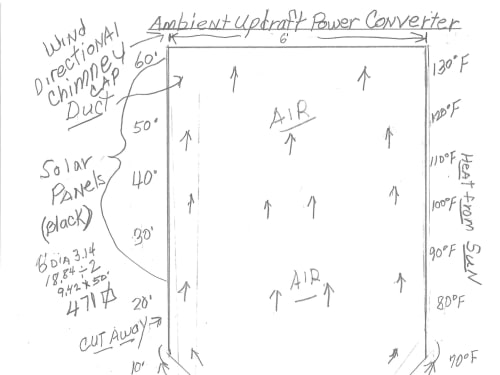 Ambient Updraft Power Converter
6'
Wind
Directional
Chimney
CAP
Duct
60'
50'
40'
30'
20'
10'
Solar
Panels
(Black)
6' DIA 3.14
18.84 ÷ 2
9.42 x 50'
471
CUT AWAY
AIR
AIR
130°F
120°F
110°F
100°F
90°F
80°F
70°F
Heat from Sun